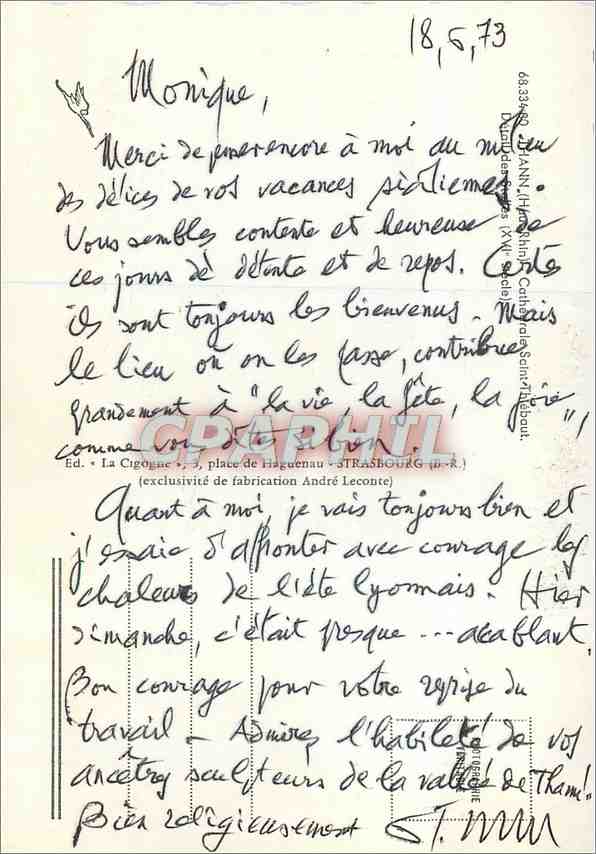 18,6,73
Monique,
Merci de penser encore à moi au milieu
des délices de vos vacances siciliennes.
Vous semblez contente et heureuse de
ces jours de détente et de repos. Certes
ils sont toujours les bienvenus. Mais
le lieu où on les passe, contribue
grandement à "la vie, la fête, la joie",
comme vous dites si bien.
Ed. « La Cigogne », 3, place de Haguenau - STRASBOURG (B.-R.)
(exclusivité de fabrication André Leconte)
Quant à moi, je vais toujours bien et
j'essaie d'affronter avec courage les
chaleurs de l'été lyonnais. Hier
dimanche, c'était presque ... acablant.
Bon courage pour votre reprise du
travail - Admirez l'habileté de vos
ancêtres sculpteurs de la vallée de Thann!
Bien religieusement
68.334 THANN (Haut-Rhin). Cathédrale Saint-Thiébaut.
Détail des Stalles (XVIe siècle)
PHOTOGRAPHIE
VÉRITABLE
GRAPHIL